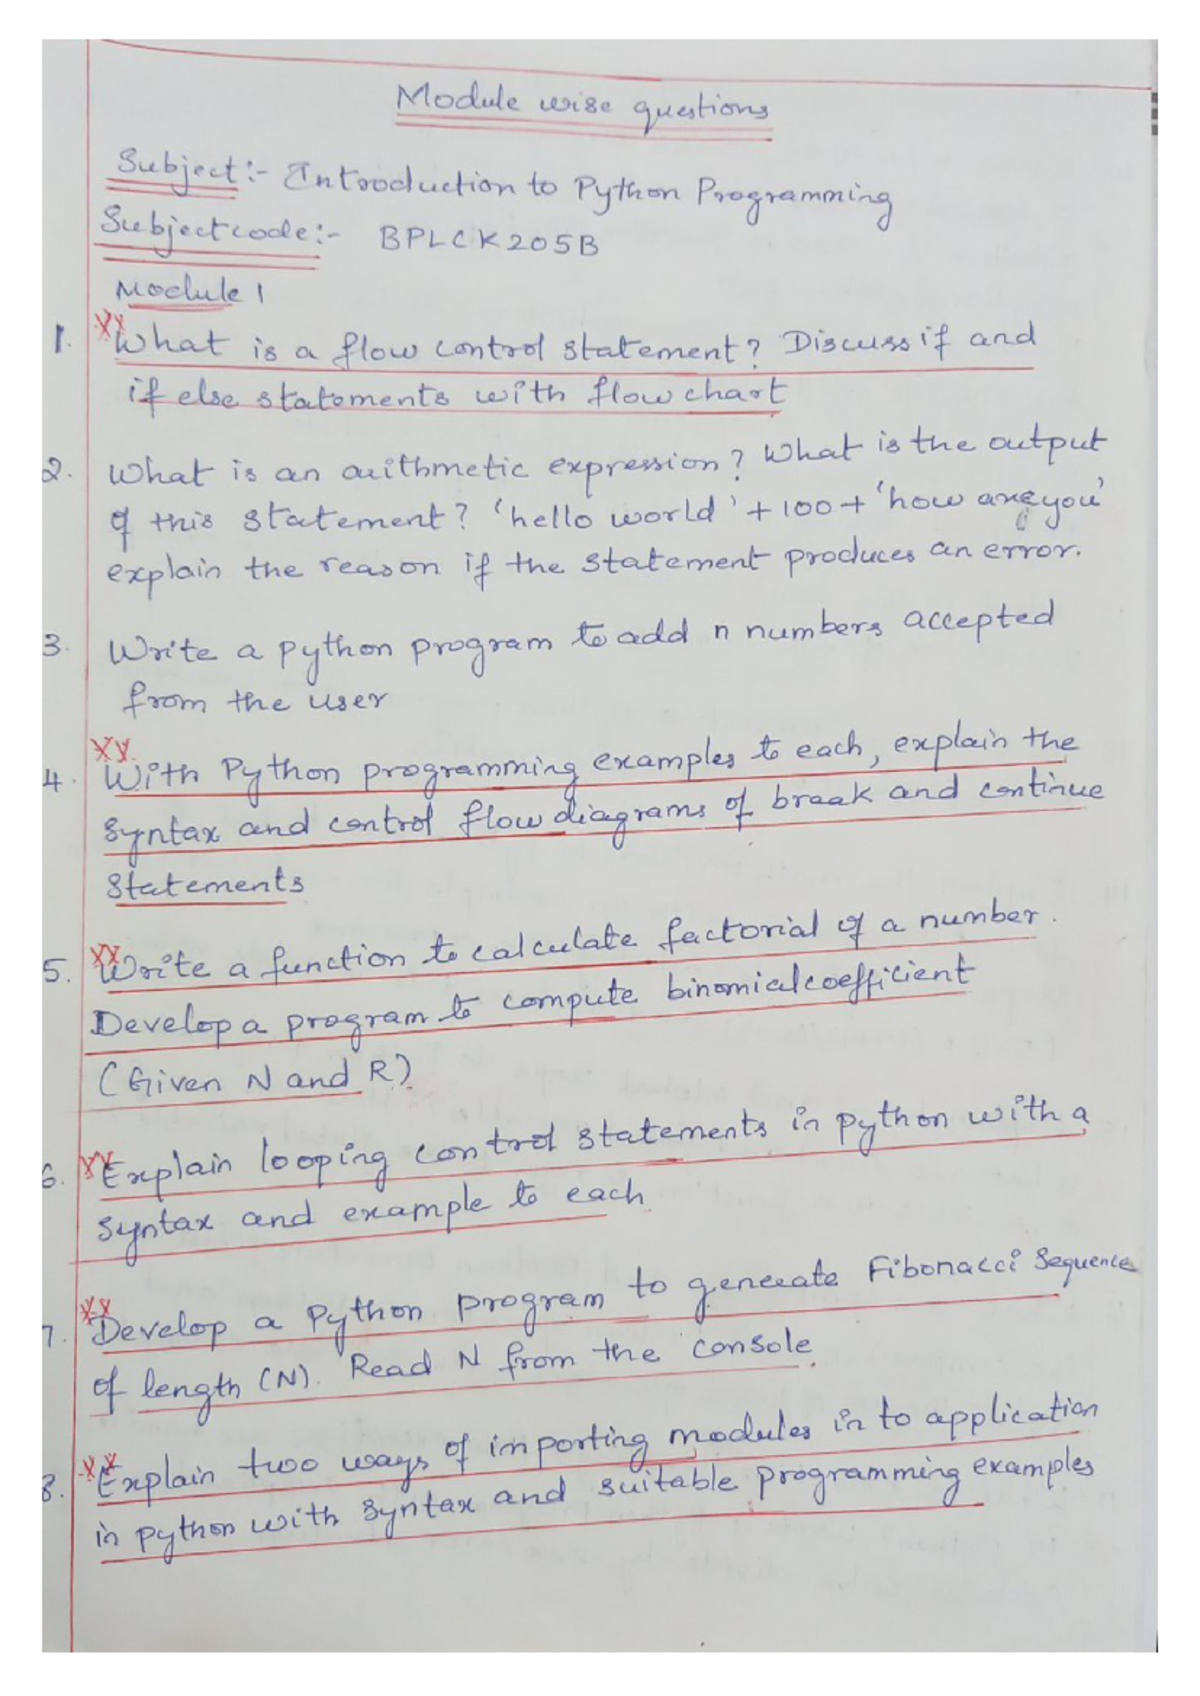 Module wise questions
Subject:- Introduction to Python Programming
Subjectcode:- BPLCK205B
Module 1
1. XX What is a flow control statement? Discuss if and
if else statements with flow chart
2. What is an arithmetic expression? What is the output
of this statement? 'hello world' + 100 + 'how are you'
explain the reason if the statement produces an error.
3. Write a python program to add n numbers accepted
from the user
4. XX With Python programming examples to each, explain the
syntax and control flow diagrams of break and continue
statements
5. XX Write a function to calculate factorial of a number.
Develop a program to compute binomial coefficient
(Given N and R)
6. XX Explain looping control statements in python with a
syntax and example to each
7. XX Develop a Python program to generate Fibonacci Sequence
of length (N). Read N from the console.
8. XX Explain two ways of importing modules in to application
in python with syntax and suitable programming examples